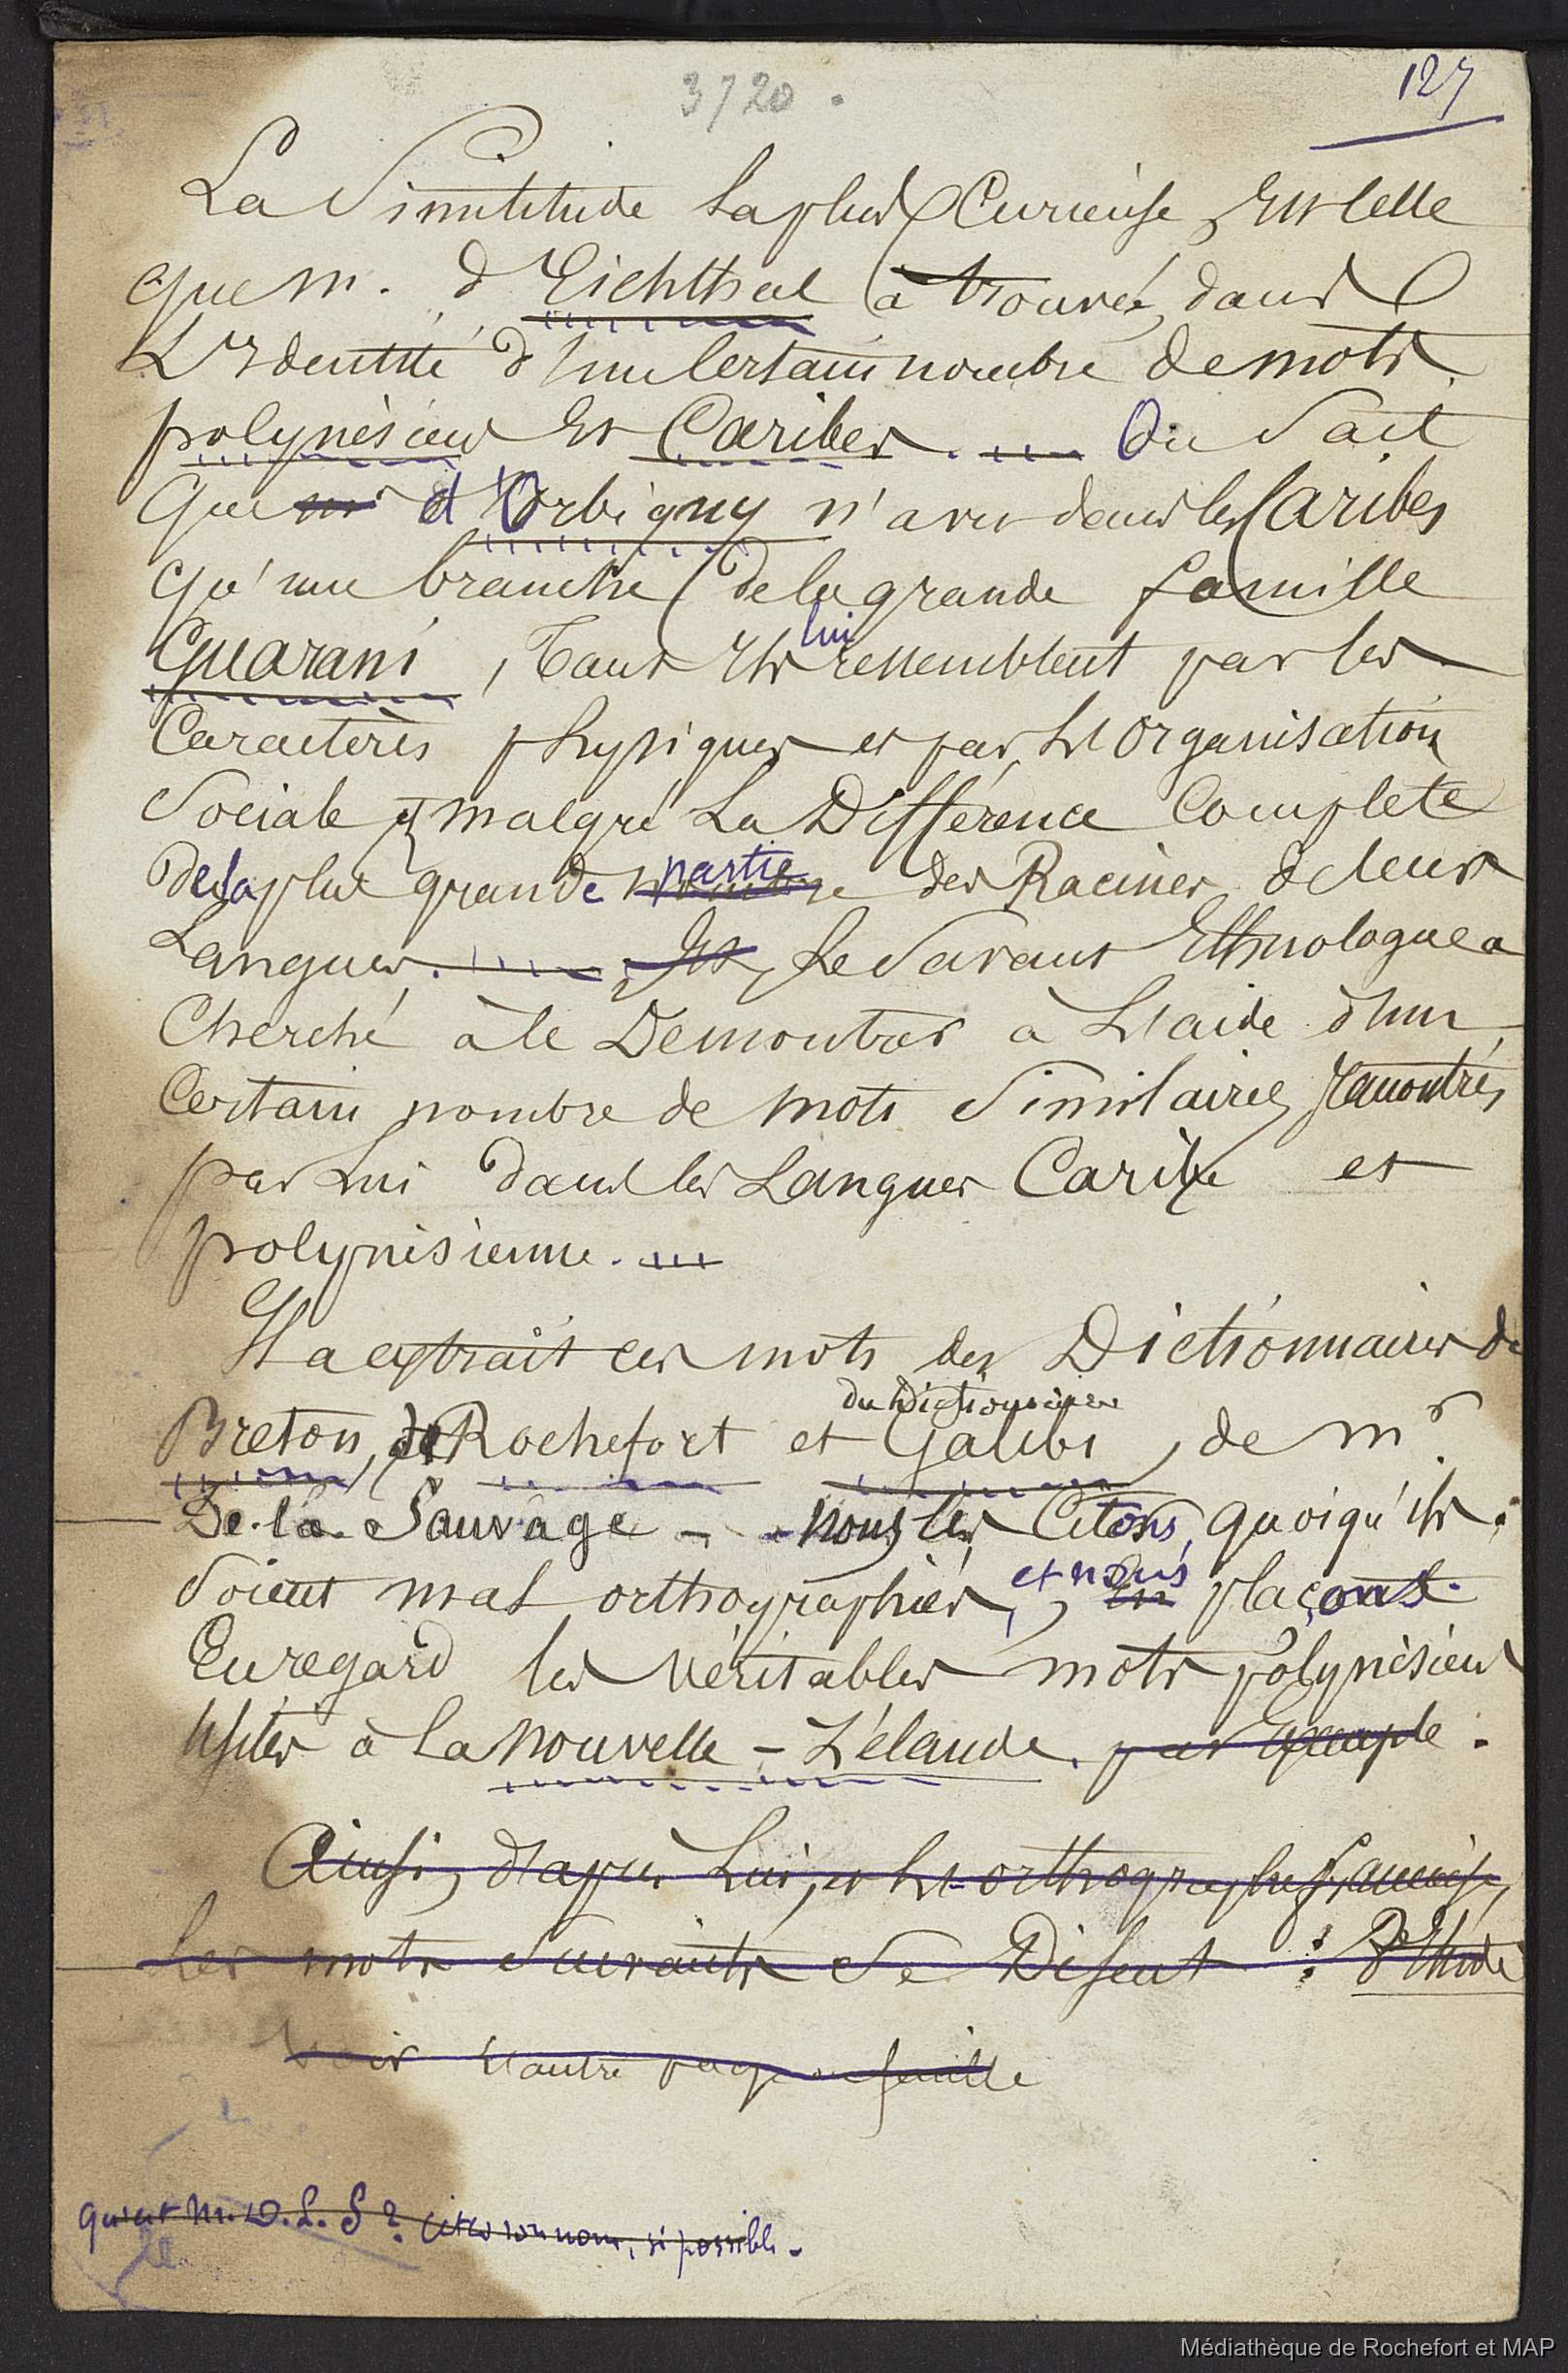 3720.
127
La Similitude la plus Curieuse, Est celle
que M. d'Eichthal a trouvée, dans
L'Identité d'un Certain nombre de mots
polynésiens Et Caribes. ... On Sait
que mr d'Orbigny n'a vu dans les Caribes
qu'une branche de la grande famille
Guarani, Tant Ils lui ressemblent par les
Caractères physiques et par L'Organisation
Sociale, malgré La Différence Complète
de la plus grande nombre partie des Racines, de leurs
Langues. ... Et, Le Savant Ethnologue a
Cherché à le Démontrer à L'aide d'un
Certain nombre de mots Similaires, rencontrés
par Lui dans les Langues Caribe et
polynésienne. ...
Il a extrait ces mots des Dictionnaires de
Breton, de Rochefort et du Dictionnaire Galibi, de Mr
De la Sauvage - nous les Citons, quoiqu'ils
Soient mal orthographiés, et nous En plaçons
En regard les véritables mots polynésiens
Usités à la Nouvelle-Zélande. par Exemple.
Ainsi, d'après Lui, et L'orthographe française,
Les mots Suivants Se Disent :
Voir l'autre page ou feuille
qui est M. D. L. S ? citer son nom, si possible.
Médiathèque de Rochefort et MAP